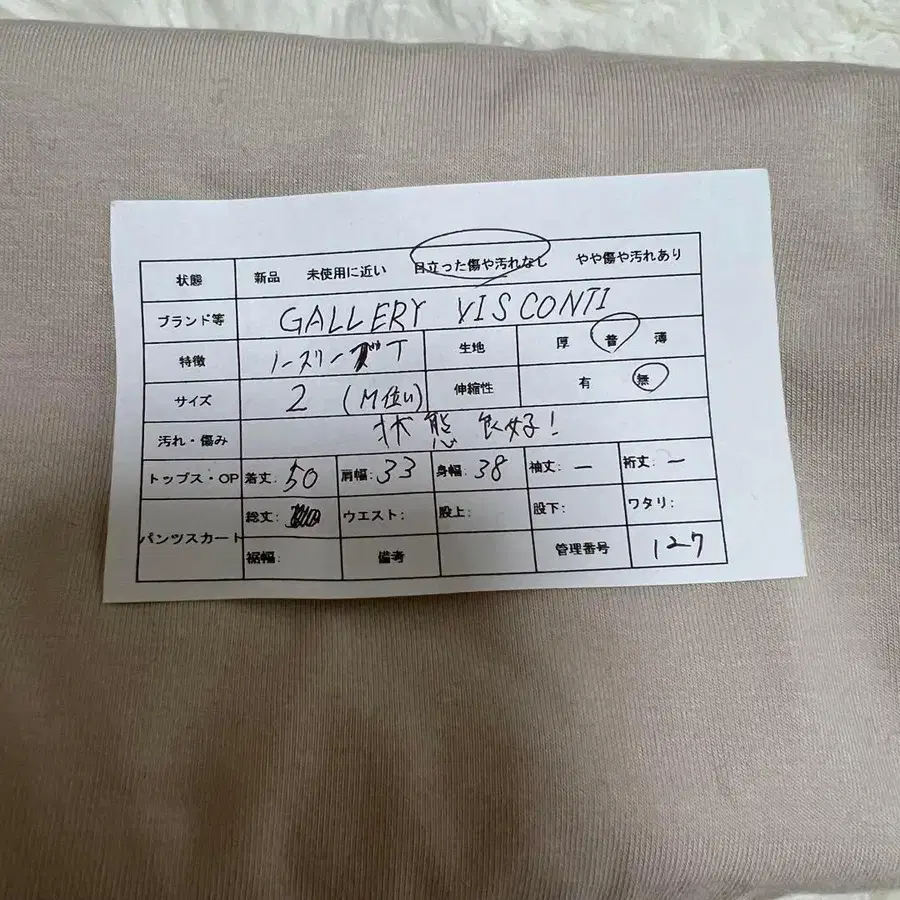 状態 新品 未使用に近い 目立った傷や汚れなし やや傷や汚れあり
ブランド等 GALLERY VISCONTI
特徴 ノースリーブT 生地 厚 普 薄
サイズ 2 (M位い) 伸縮性 有 無
汚れ・傷み 状態良好!
トップス・OP 着丈: 50 肩幅: 33 身幅: 38 袖丈: ー 裄丈: ー
パンツスカート 総丈: ウエスト: 股上: 股下: ワタリ:
裾幅: 備考 管理番号 127